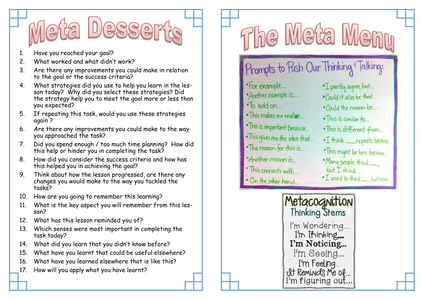 Meta Desserts
1. Have you reached your goal?
2. What worked and what didn't work?
3. Are there any improvements you could make in relation
to the goal or the success criteria?
4. What strategies did you use to help you learn in the les-
son today? Why did you select these strategies? Did
the strategy help you to meet the goal more or less than
you expected?
5. If repeating this task, would you use these strategies
again ?
6. Are there any improvements you could make to the way
you approached the task?
7. Did you spend enough / too much time planning? How did
this help or hinder you in completing the task?
8. How did you consider the success criteria and how has
this helped you in achieving the goal?
9. Think about how the lesson progressed, are there any
changes you would make to the way you tackled the
tasks?
10. How are you going to remember this learning?
11. What is the key aspect you will remember from this les-
son?
12. What has this lesson reminded you of?
13. Which senses were most important in completing the
task today?
14. What did you learn that you didn't know before?
15. What have you learnt that could be useful elsewhere?
16. What have you learned elsewhere that is like this?
17. How will you apply what you have learnt?
The Meta Menu
Prompts to Push Our Thinking/Talking
•For example...
•Another example is...
•To add on...
•This makes me realize...
•This is important because...
•This gives me the idea that...
•The reason for this is...
•Another reason is...
•This connects with...
•On the other hand...
•I partly agree, but...
•Could it also be that...
•Could the reason be...
•This is similar to...
•This is different from...
•I think ___ because
•This might be here because...
•Many people think ___
but I think...
•I used to think ___, but now
Metacognition
Thinking Stems
I'm Wondering...
I'm Thinking...
I'm Noticing...
I'm Seeing...
I'm Feeling..
It Reminds Me of...
I'm figuring out...